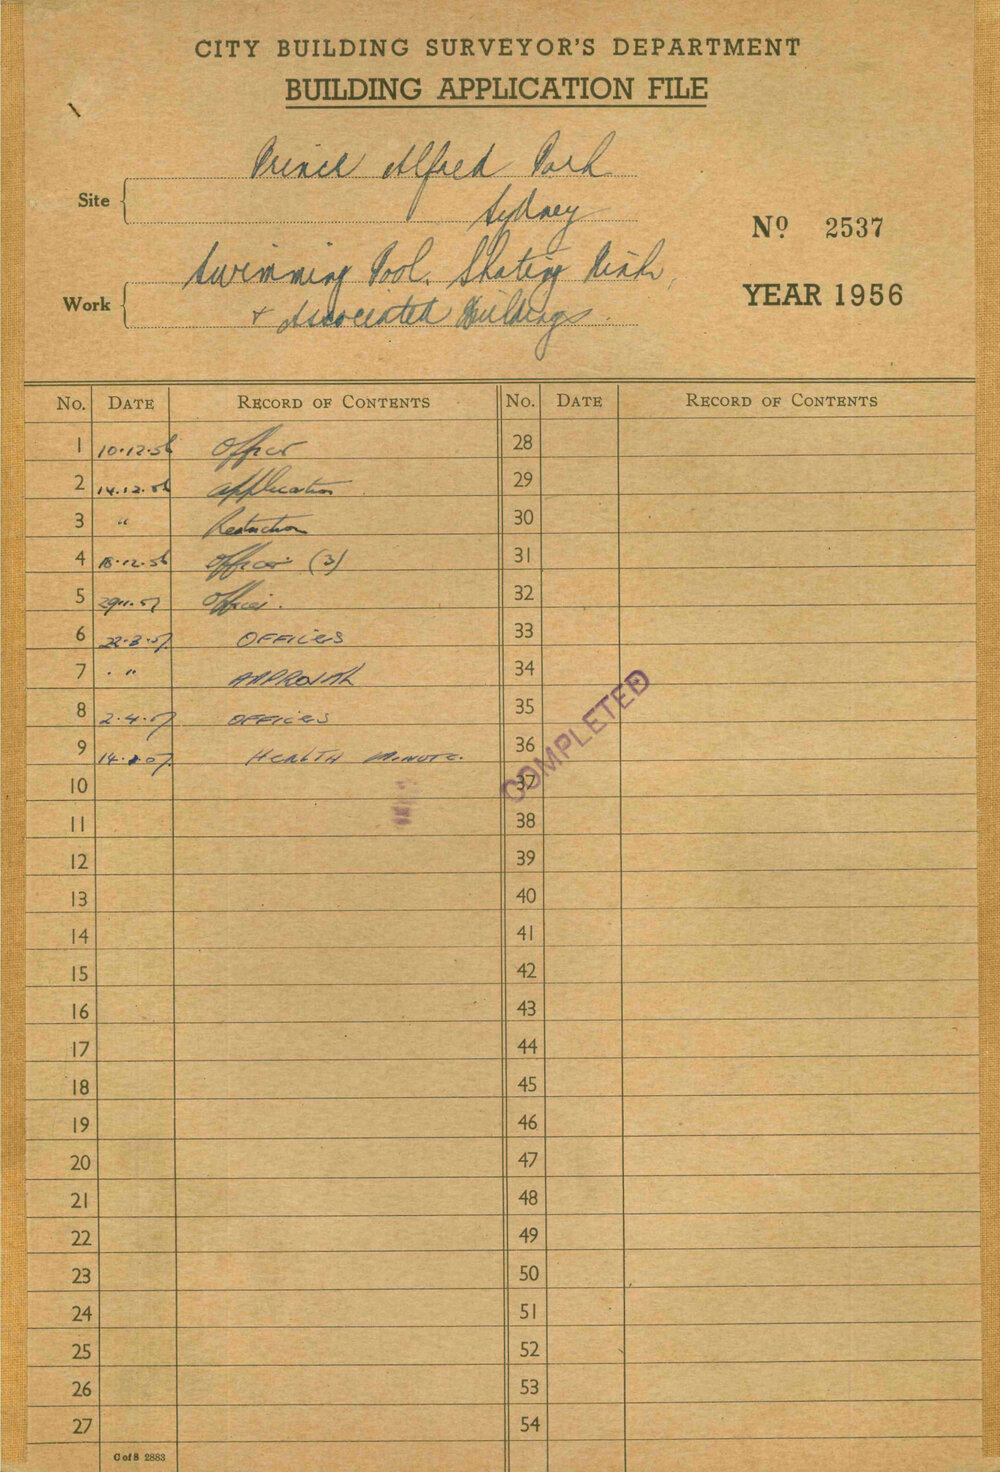 CITY BUILDING SURVEYOR'S DEPARTMENT
BUILDING APPLICATION FILE
Site
Prince Alfred Park
Sydney
Nº 2537
Work
Swimming Pool, Skating Rink,
+ Associated Buildings.
YEAR 1956
No. DATE RECORD OF CONTENTS No. DATE RECORD OF CONTENTS
1 10.12.56 Officer 28
2 14.12.56 Application 29
3 " 30
4 18.12.56 Officer (3) 31
5 Officer. 32
6 22.3.57 OFFICERS 33
7 " APPROVAL 34
8 2.4.57 OFFICERS 35
9 HEALTH MINUTE. 36
10 37
COMPLETED
11 38
12 39
13 40
14 41
15 42
16 43
17 44
18 45
19 46
20 47
21 48
22 49
23 50
24 51
25 52
26 53
27 54
C of S 2883